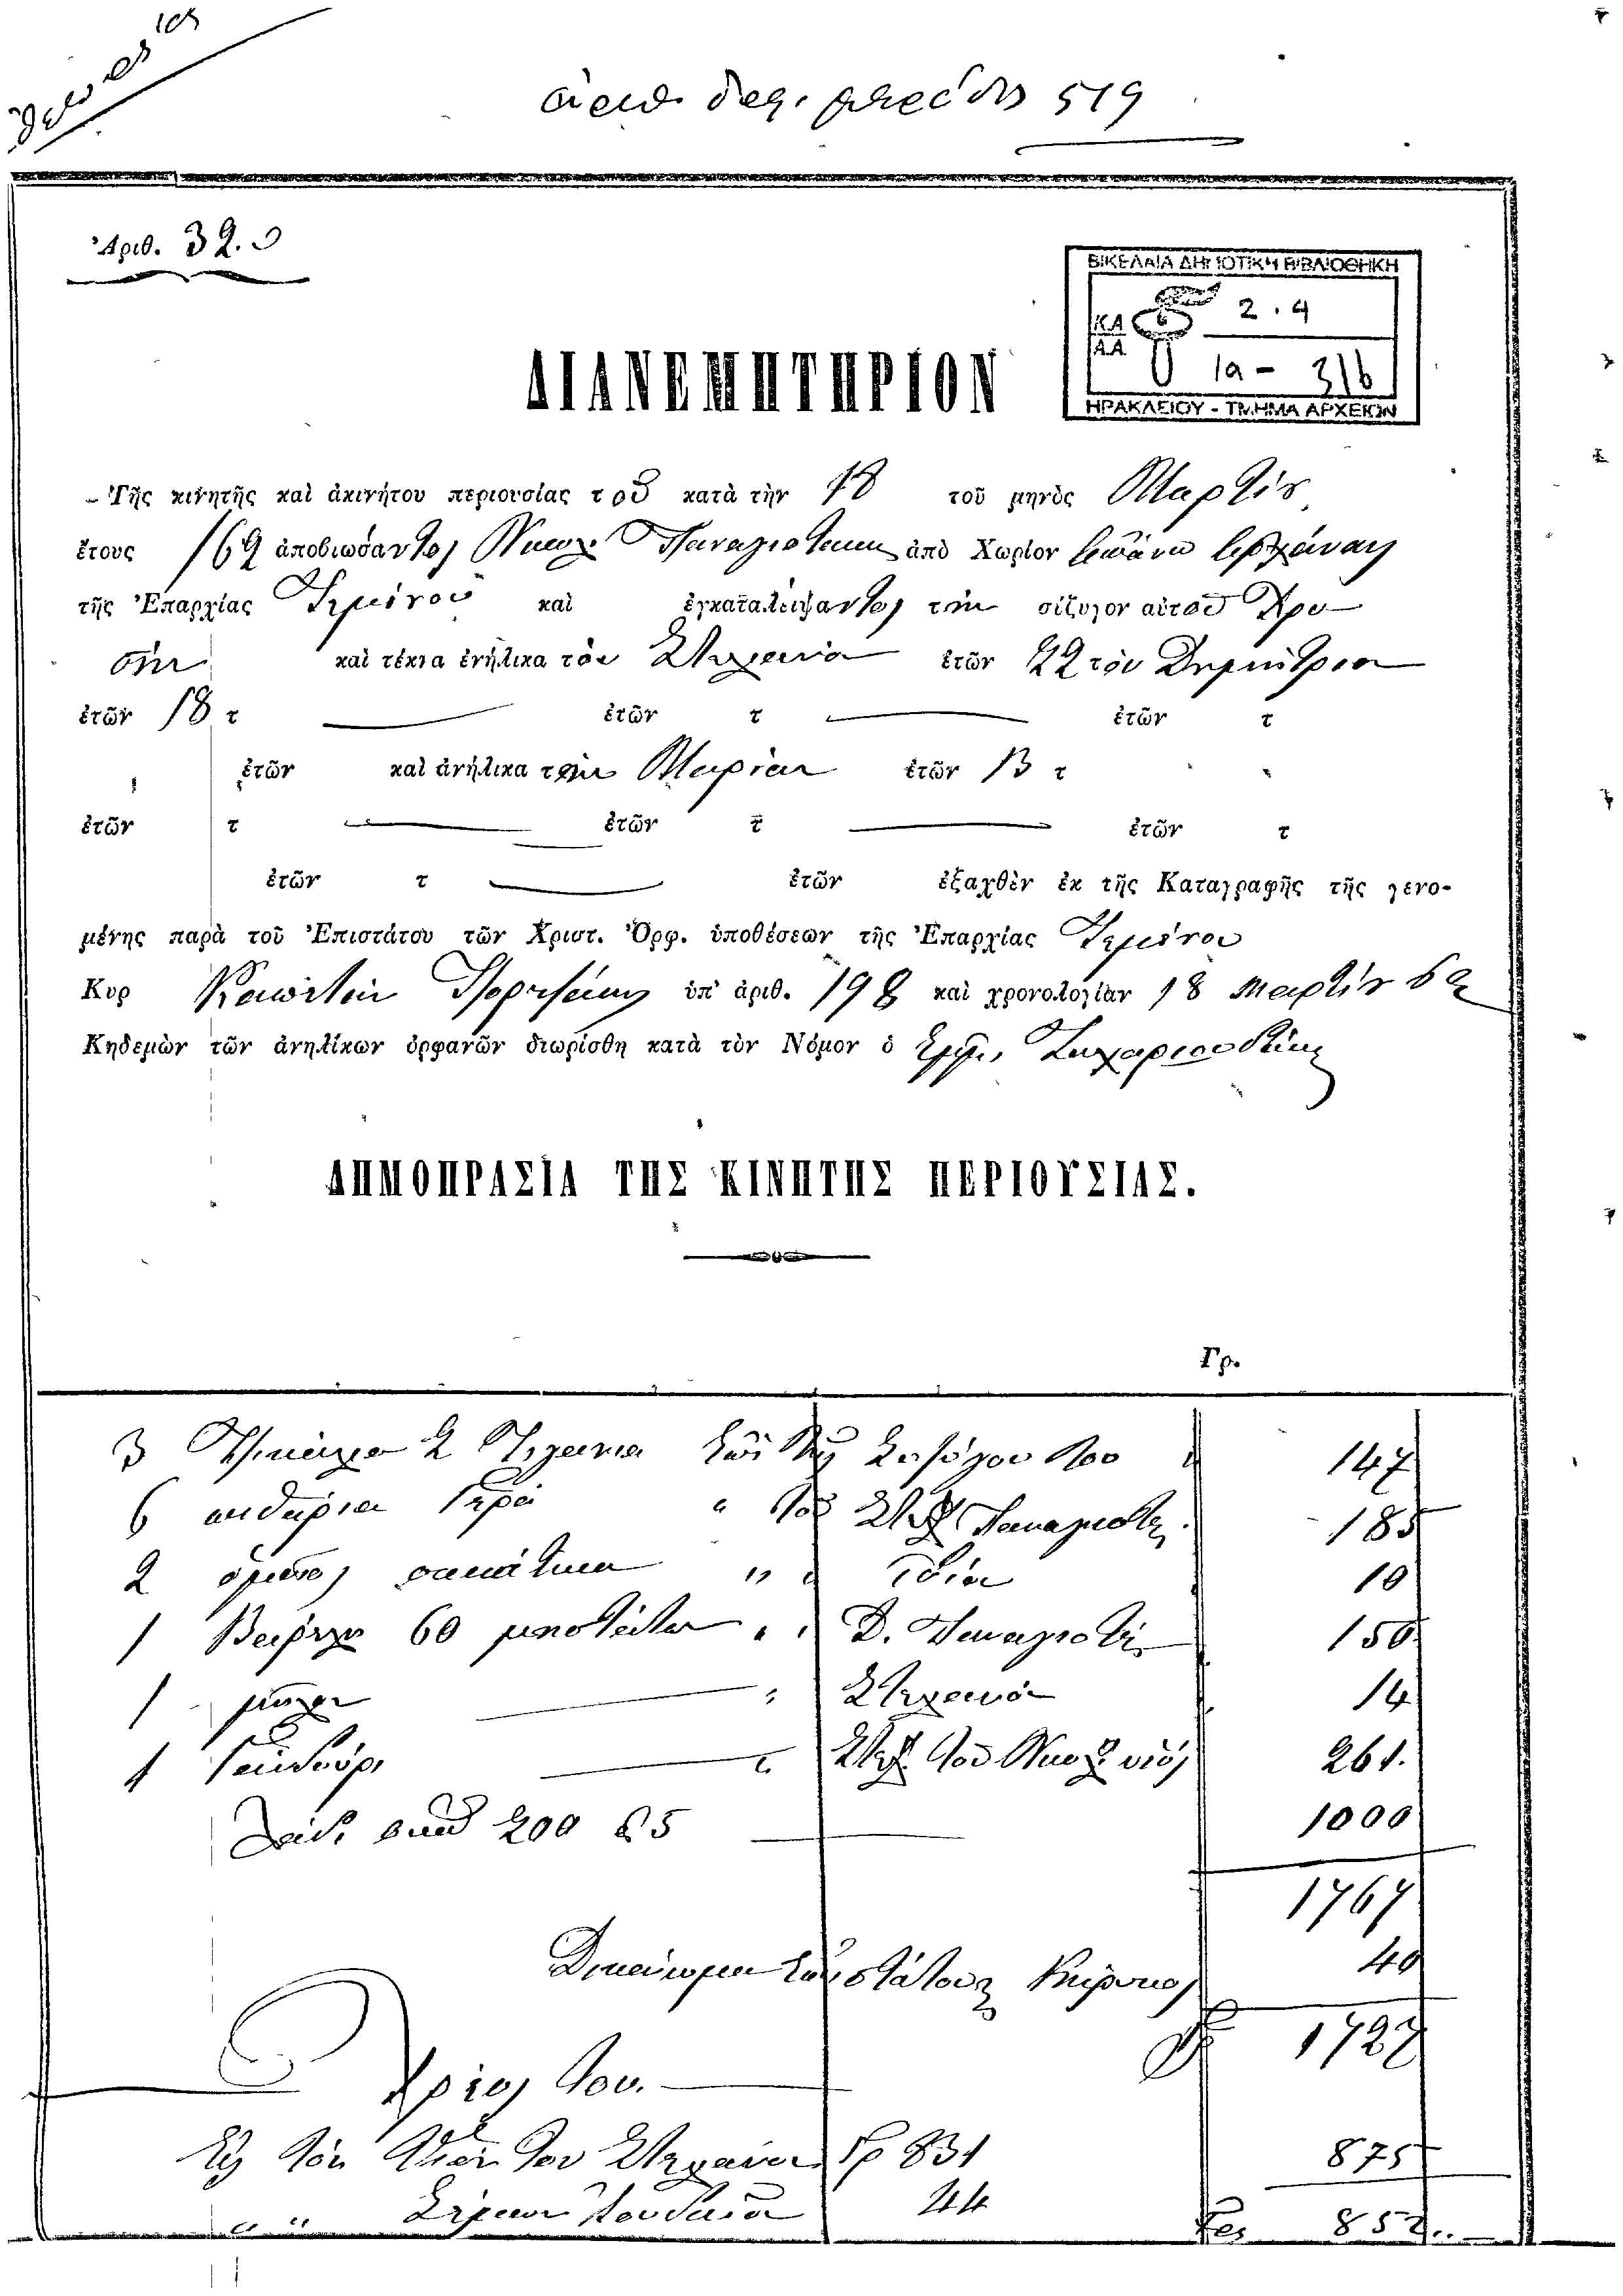 519
Ἀριθ. 32.
ΒΙΚΕΛΑΙΑ ΔΗΜΟΤΙΚΗ ΒΙΒΛΙΟΘΗΚΗ
Κ.Α 2.4
Α.Α. 1α - 316
ΗΡΑΚΛΕΙΟΥ - ΤΜΗΜΑ ΑΡΧΕΙΩΝ
ΔΙΑΝΕΜΗΤΗΡΙΟΝ
Τῆς κινητῆς καὶ ἀκινήτου περιουσίας τοῦ κατὰ τὴν 18 τοῦ μηνὸς Μαρτίου
ἔτους 169 ἀποβιώσαντος Νικολ. Παναγιωτακη ἀπὸ Χωρίον Ἀπάνω Ἀρχάναις
τῆς Ἐπαρχίας Τεμένους καὶ ἐγκαταλείψαντος τὴν σύζυγον αὐτοῦ Χρυ
σὴν καὶ τέκνα ἐνήλικα τὸν Στυλιανὸ ἐτῶν 22 τὸν Δημήτριον
ἐτῶν 18 τ ἐτῶν τ ἐτῶν τ
ἐτῶν καὶ ἀνήλικα τὴν Μαρίαν ἐτῶν 13 τ
ἐτῶν τ ἐτῶν τ ἐτῶν τ
ἐτῶν τ ἐτῶν ἐξαχθὲν ἐκ τῆς Καταγραφῆς τῆς γενο-
μένης παρὰ τοῦ Ἐπιστάτου τῶν Χριστ. Ὀρφ. ὑποθέσεων τῆς Ἐπαρχίας Τεμένους
Κυρ Κωνσταν ὑπ' ἀριθ. 198 καὶ χρονολογίαν 18 Μαρτίου 69
Κηδεμὼν τῶν ἀνηλίκων ὀρφανῶν διωρίσθη κατὰ τὸν Νόμον ὁ Ἐμμ. Ζαχαριουδάκης
ΔΗΜΟΠΡΑΣΙΑ ΤΗΣ ΚΙΝΗΤΗΣ ΠΕΡΙΟΥΣΙΑΣ.
Γρ.
3 2 Τηγανια Ἐπὶ τῆς Συζύγου του 147
6 πιθάρια γερά " τοῦ Στυλ Παναγιωτ. 185
2 ὁμοίως σακάτικα " ἰδίου 10
1 60 μιστάτων " Δ. Παναγιωτ. 150
1 " Στυλιανό 14
1 Γαιδούρι " Στυλ. τοῦ Νικολ υἱός 261.
200 5 1000
1767
Δικαίωμα Ἐπιστάτου κ Κήρυκος 40
1727
Χρέος του.
Εἰς τὸν υἱὸν του Στυλιανον Γρ 831 875
" " 44
852